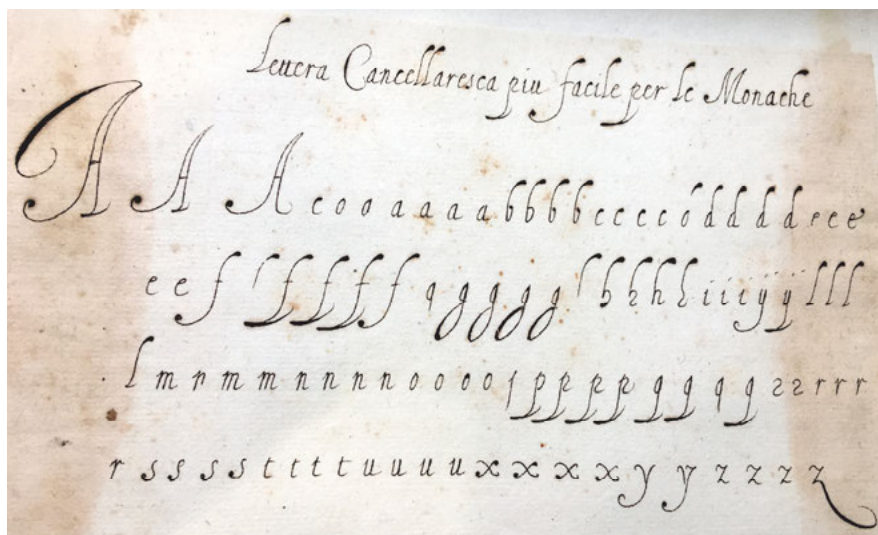 Lettera Cancellaresca piu facile per le Monache
A A A c o o a a a a b b b b c c c c ó d d d d e e e
e e f ſ f f f f q g g g g l h h h h i i i y ÿ l l l
l m n m m n n n n o o o o ſ p p p p q q q q 2 2 r r r
r s s s s t t t t u u u u x x x x y y z z z z